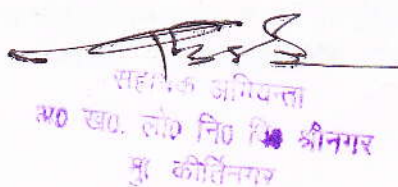 सहायक अभियन्ता
अ० ख०. लो० नि० वि० श्रीनगर
मु० कीर्तिनगर